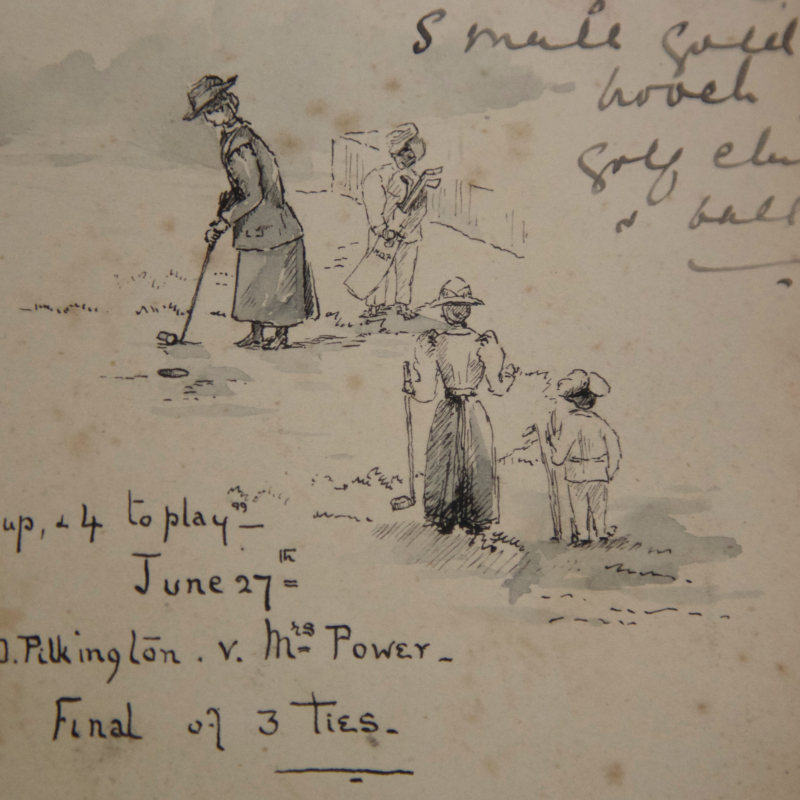 Small gold
brooch
golf clu
& ball
up, & 4 to play"
June 27th
D. Pilkington . v. Mrs Power
Final of 3 Ties.